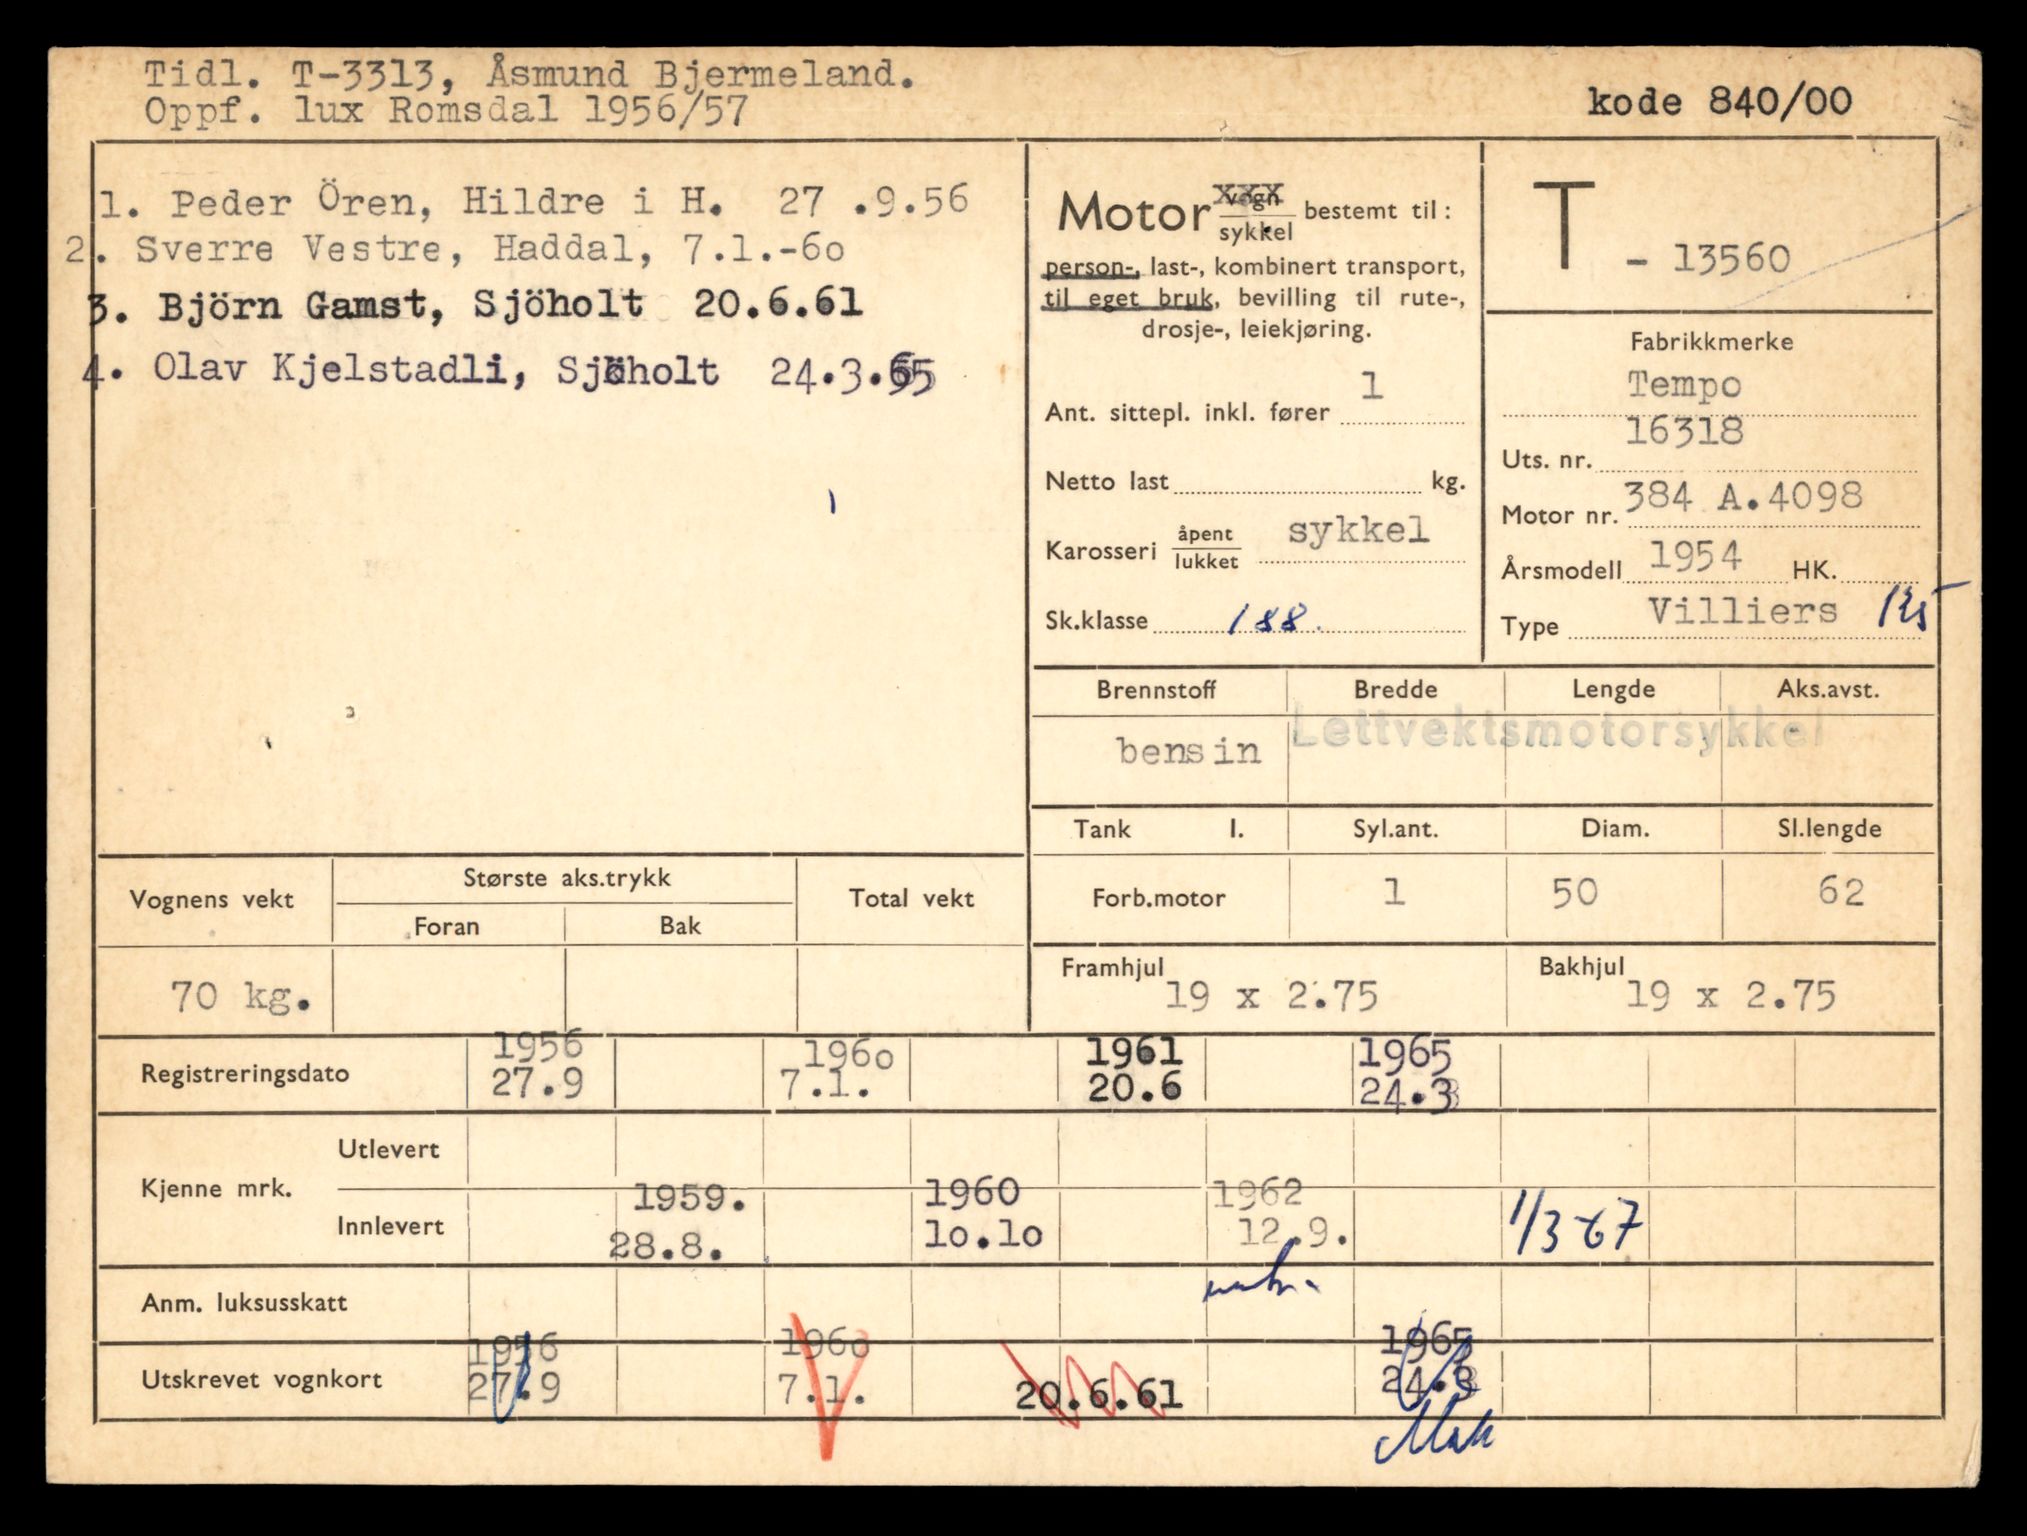 Tidl. T-3313, Åsmund Bjermeland.
Oppf. lux Romsdal 1956/57
kode 840/00
1. Peder Ören, Hildre i H. 27 .9.56
2. Sverre Vestre, Haddal, 7.1.-60
3. Björn Gamst, Sjöholt 20.6.61
4. Olav Kjelstadli, Sjöholt 24.3.65
Motor vogn/sykkel bestemt til:
person-, last-, kombinert transport,
til eget bruk, bevilling til rute-,
drosje-, leiekjøring.
Ant. sittepl. inkl. fører 1
Netto last kg.
Karosseri åpent/lukket sykkel
Sk.klasse 188.
T - 13560
Fabrikkmerke
Tempo
Uts. nr. 16318
Motor nr. 384 A.4098
Årsmodell 1954 HK.
Type Villiers
Brennstoff Bredde Lengde Aks.avst.
bensin Lettvektsmotorsykkel
Tank l. Syl.ant. Diam. Sl.lengde
Forb.motor 1 50 62
Framhjul 19 x 2.75 Bakhjul 19 x 2.75
Vognens vekt Største aks.trykk Total vekt
Foran Bak
70 kg.
1956 1960 1961 1965
Registreringsdato 27.9 7.1. 20.6 24.3
Kjenne mrk.
Utlevert
Innlevert
1959. 1960 1962
28.8. 10.10 12.9. 1/3-67
Anm. luksusskatt
1956 1960 1965
Utskrevet vognkort 27.9 7.1. 20.6.61 24.3